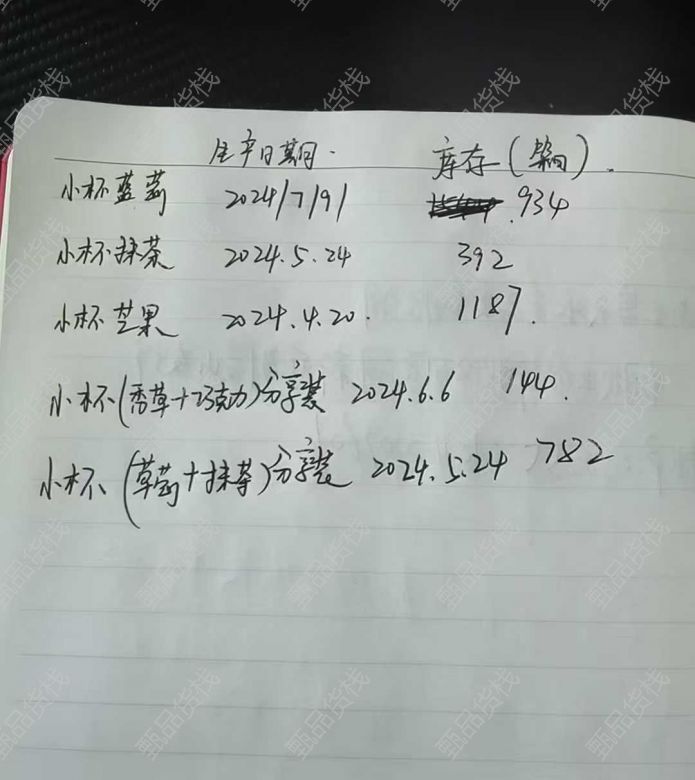 生产日期. 库存(箱).
小杯蓝莓 2024/7/9/ 934
小杯抹茶 2024.5.24 392
小杯芒果 2024.4.20. 1187.
小杯(香草+巧克力)分享装 2024.6.6 144.
小杯、(草莓+抹茶)分享装 2024.5.24 782
甄品货栈